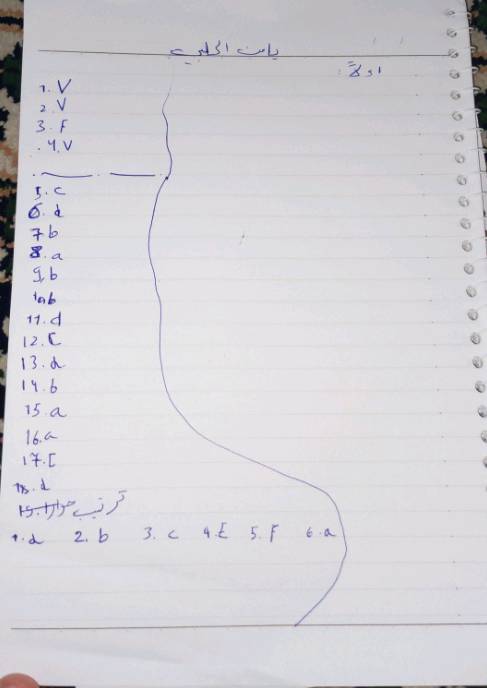 أولاً:
1. V
2. V
3. F
4. V
5. c
6. d
7 b
8. a
9. b
10 b
11. d
12. C
13. d
14. b
15. a
16. a
17. C
18. d
ترتيب حوار
1. d 2. b 3. c 4. E 5. F 6. a